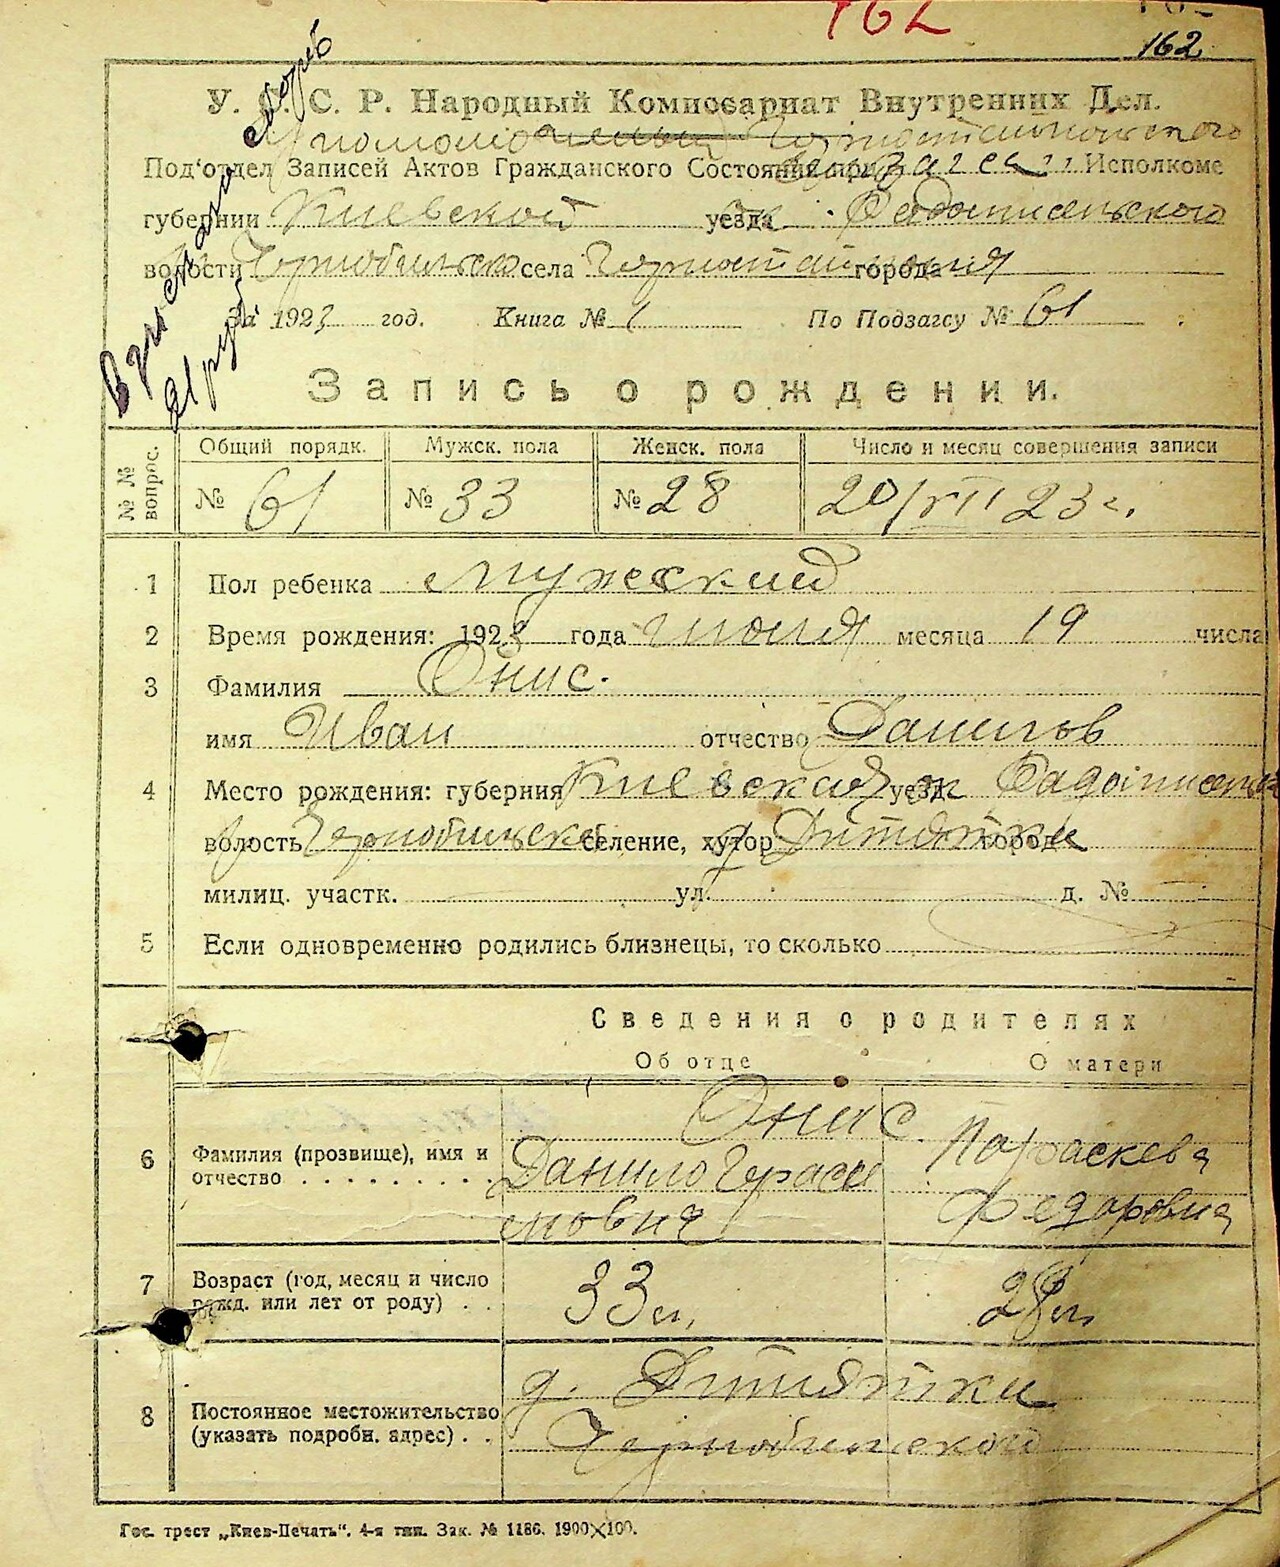 162
162
У. С. С. Р. Народный Комиссариат Внутренних Дел.
Под'отдел Записей Актов Гражданского Состояния при Исполкоме
губернии Киевской уезда Радомысльского
волости села города
За 1923 год. Книга № 1 По Подзагсу № 61
Запись о рождении.
№ № вопрос. Общий порядк. Мужск. пола Женск. пола Число и месяц совершения записи
№ 61 № 33 № 28 20/VII 23 г.
1 Пол ребенка мужеский
2 Время рождения: 1923 года месяца 19 числа
3 Фамилия Онис.
имя Иван отчество Данилов
4 Место рождения: губерния Киевская уезд
волость селение, хутор д. Дитятки город
милиц. участк. ул. д. №
5 Если одновременно родились близнецы, то сколько
Сведения о родителях
Об отце О матери
Онис
6 Фамилия (прозвище), имя и отчество Данило Гераси Параскева
мович Федоровна
7 Возраст (год, месяц и число рожд. или лет от роду) 33 л. 28 л.
8 Постоянное местожительство (указать подробн. адрес) д. Дитятки
Чернобильской
Гос. трест „Киев-Печать". 4-я тип. Зак. № 1186. 1900×100.